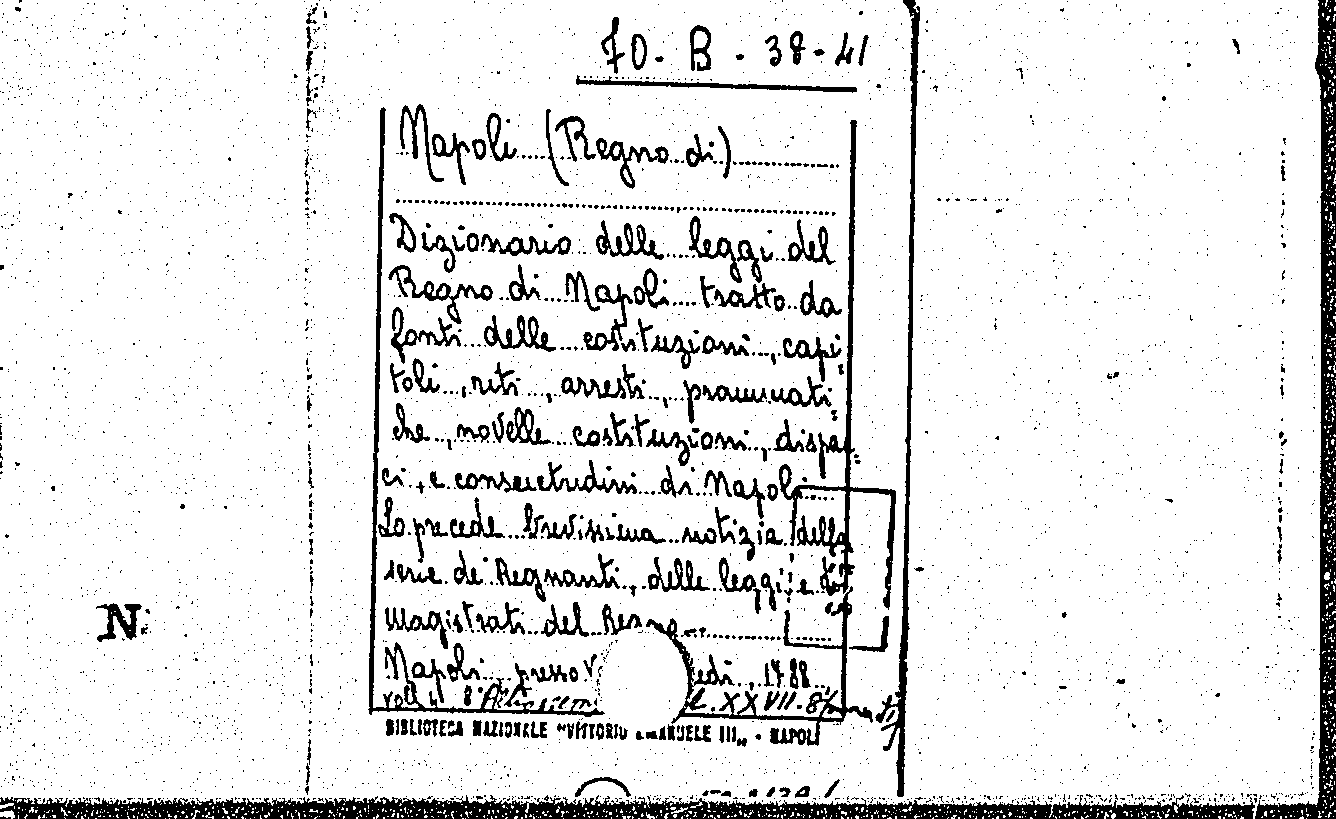 70 - B - 38 - 41
Napoli (Regno di)
Dizionario delle leggi del
Regno di Napoli tratto da
fonti delle costituzioni, capi
toli, riti, arresti, prammati
che, novelle costituzioni, dispac
ci, e consuetudini di Napoli.
Lo precede brevissima notizia della
serie de' Regnanti, delle leggi, e
magistrati del Regno...
Napoli, presso V edi, 1788
voll. 4 8°
XXVII. 8
BIBLIOTECA NAZIONALE "VITTORIO EMANUELE III" - NAPOLI
N.